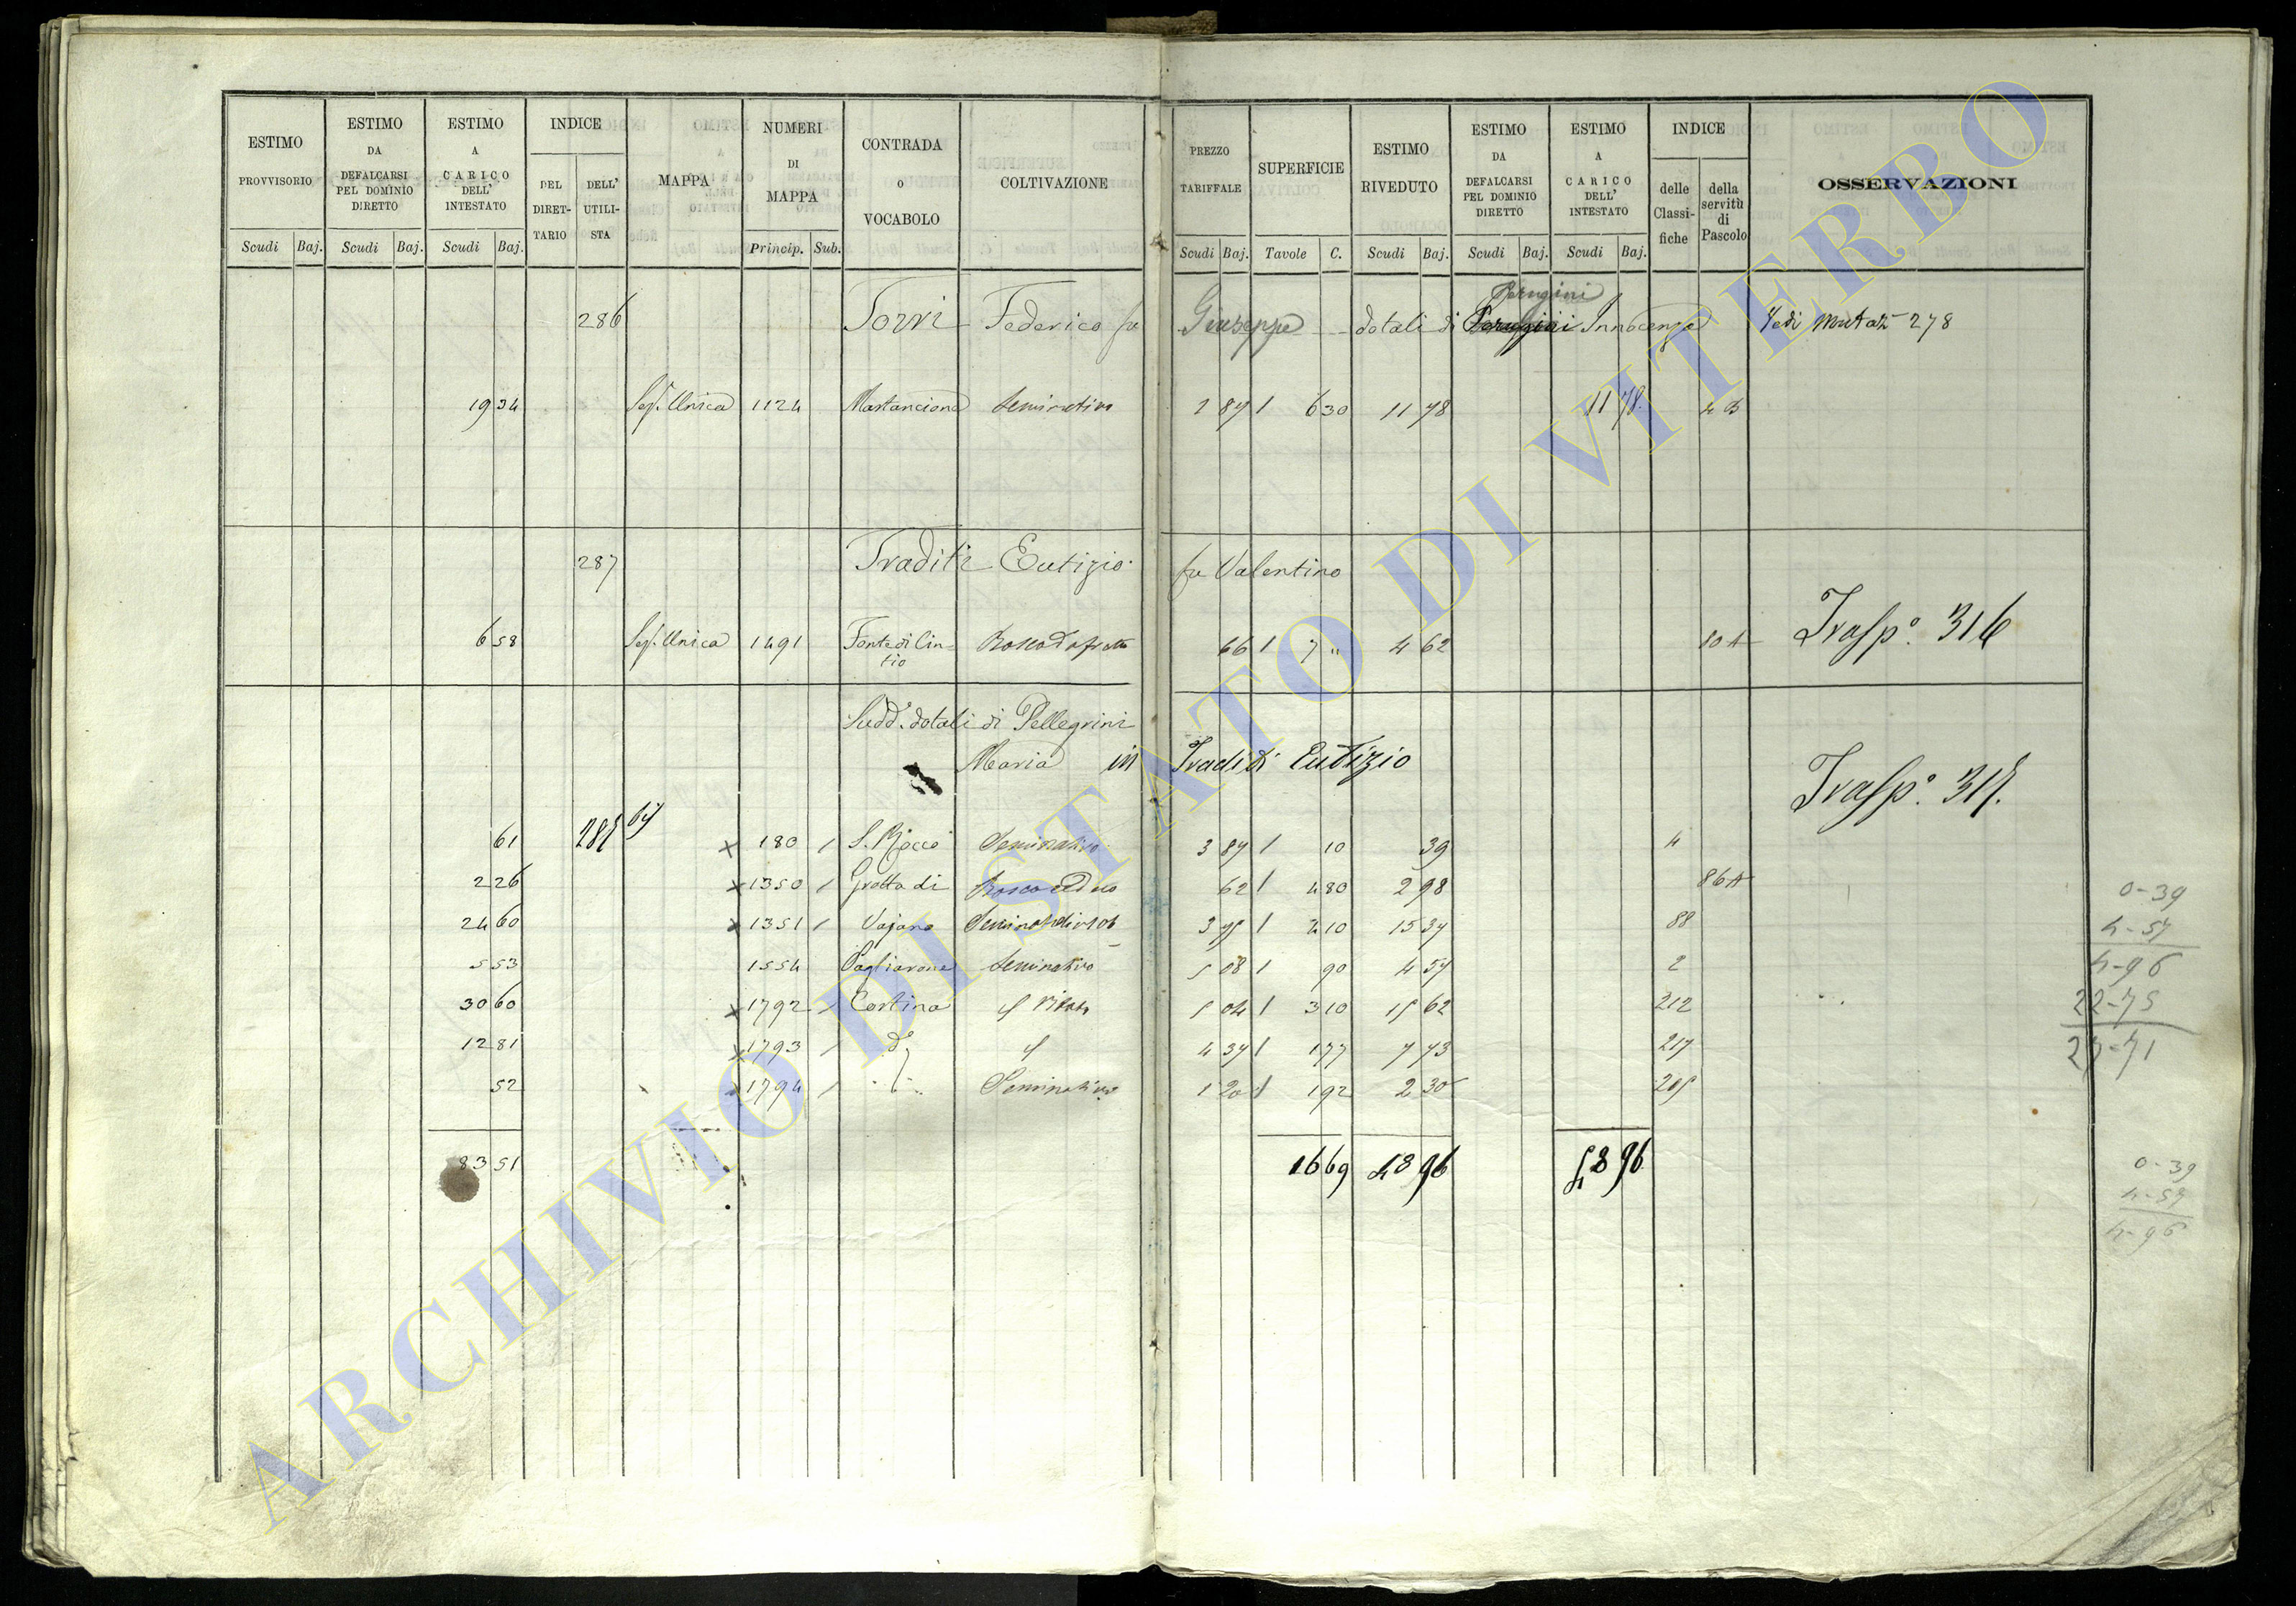 ESTIMO PROVVISORIO Scudi Baj.
ESTIMO DA DEFALCARSI PEL DOMINIO DIRETTO Scudi Baj.
ESTIMO A CARICO DELL' INTESTATO Scudi Baj.
INDICE DEL DIRET- TARIO DELL' UTILI- STA
MAPPA
NUMERI DI MAPPA Princip. Sub.
CONTRADA O VOCABOLO
COLTIVAZIONE
PREZZO TARIFFALE Scudi Baj.
SUPERFICIE Tavole C.
ESTIMO RIVEDUTO Scudi Baj.
ESTIMO DA DEFALCARSI PEL DOMINIO DIRETTO Scudi Baj.
ESTIMO A CARICO DELL' INTESTATO Scudi Baj.
INDICE delle Classi- fiche della servitù di Pascolo
OSSERVAZIONI
Perugini
286 Torri Federico fu Giuseppe dotali di Perugini Innocenza Vedi Mutaz 278
19 34 Sez. Unica 1124 Mastancione Seminativo 1 87 1 630 11 78 11 78 4 B
287 Traditi Eutizio fu Valentino
6 58 Sez. Unica 1491 Fonte di Cin- 66 1 7 " 4 62 80 A Trasp.o 316
tio
Sudd.o dotali di Pellegrini
Maria in Tradidi Eutizio
Trasp.o 317.
61 × 180 / S. Rocco Seminativo 3 87 1 10 39 4
2 26 × 1350 / Grotta di Bosco ceduo 62 1 480 2 98 86 A
24 60 × 1351 / Vajano 1 410 15 37 88
5 53 1554 Pagliarone Seminativo 5 08 1 90 4 57 2
30 60 × 1792 / Cortina 5 04 1 310 15 62 212
12 81 × 1793 / d.o 4 37 1 177 7 73 217
52 1794 / Seminativo 1 20 1 192 2 30
83 51 1669 48 96 48 96
0-39
4-57
4-96
22-75
27-71
0-39
4-57
4-96
ARCHIVIO DI STATO DI VITERBO